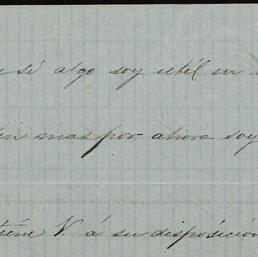 si algo soy util en
mas por ahora soy
tiéne V. á su disposición